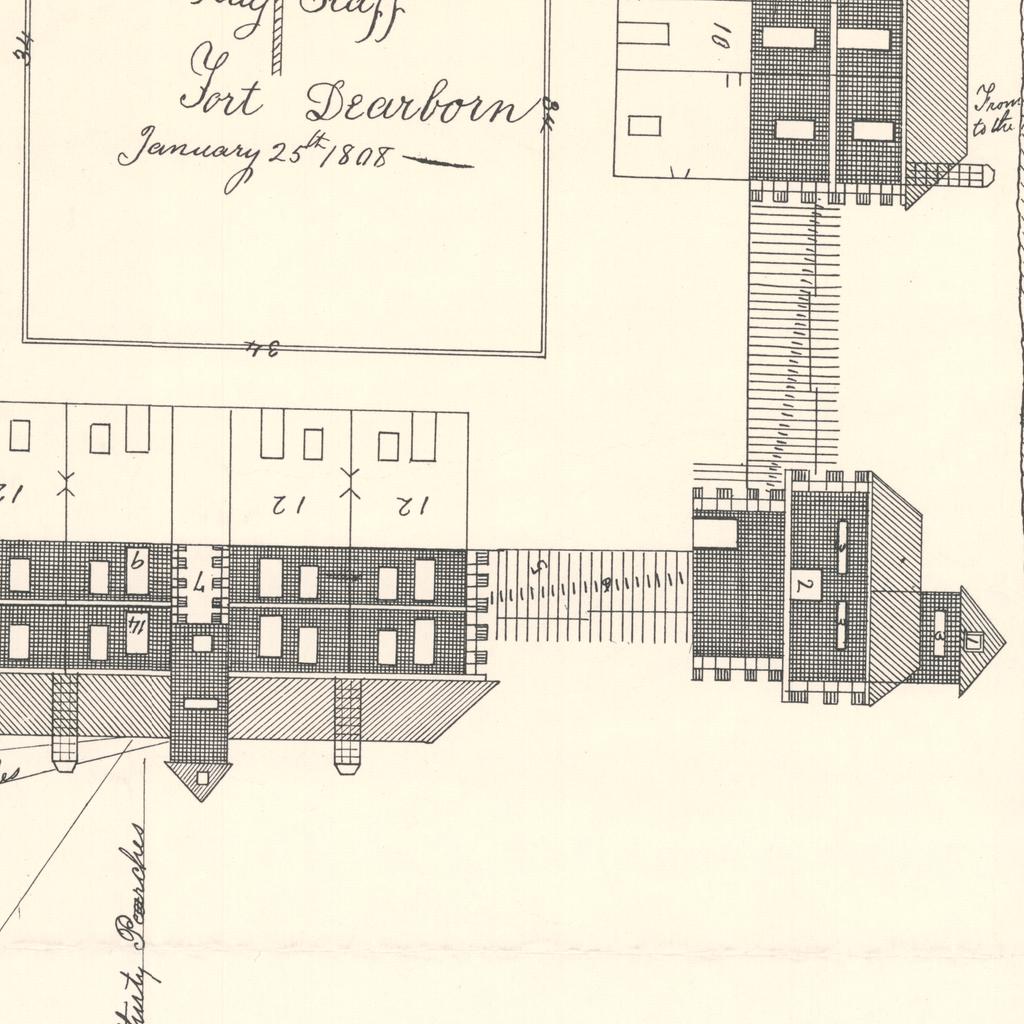 Flag Staff
Fort Dearborn
January 25th 1808
34
34
34
10
From
to the
12
12
12
9
7
14
5
8
2
3
1
thirty Pearches